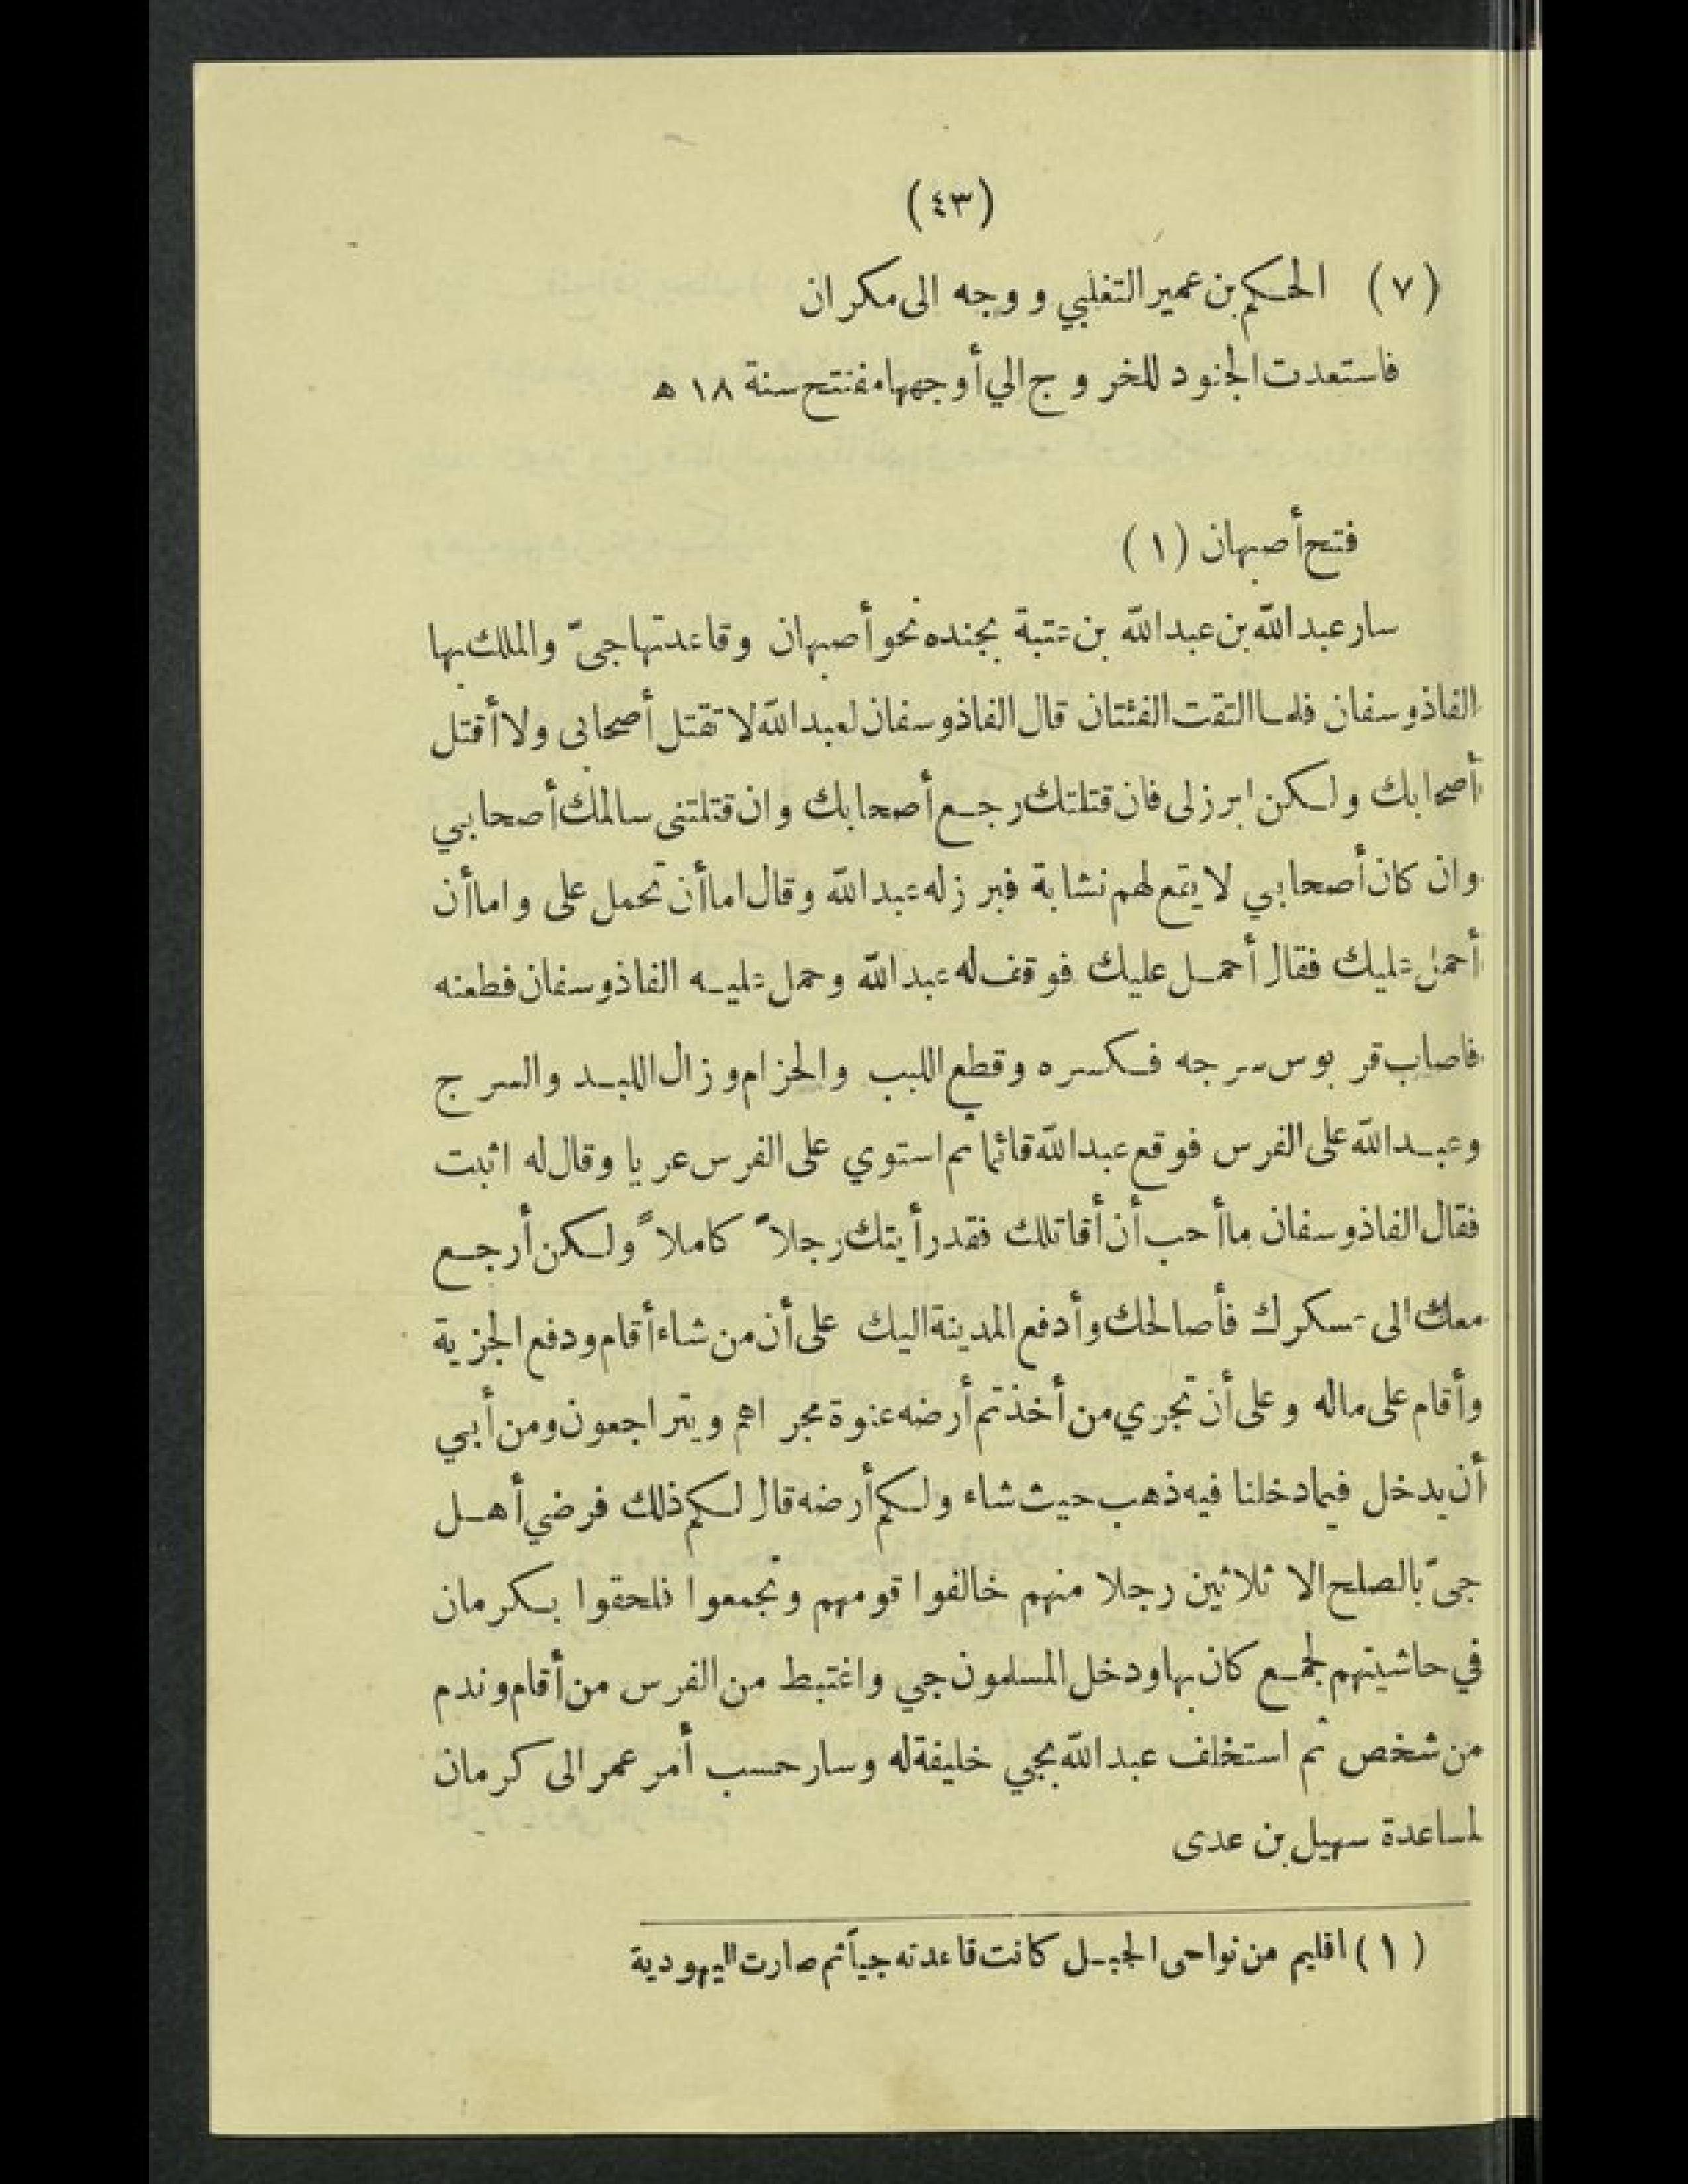 (٤٣)
(٧) الحكم بن عمير التغلبي ووجه الى مكران
فاستعدت الجنود للخروج الي أوجهها مفتتح سنة ١٨ ه
فتح أصبهان (١)
سار عبد الله بن عبد الله بن عتبة بجنده نحو أصبهان وقاعدتها جىّ والملك بها
الفاذوسفان فلما التقت الفئتان قال الفاذوسفان لعبد الله لا تقتل أصحابى ولا أقتل
أصحابك ولكن ابرز لى فان قتلتك رجع أصحابك وان قتلتنى سالمك أصحابي
وان كان أصحابي لا يقع لهم نشابة فبرز له عبد الله وقال اما أن تحمل على واما أن
أحمل عليك فقال أحمل عليك فوقف له عبد الله وحمل عليه الفاذوسفان فطعنه
فاصاب قربوس سرجه فكسره وقطع اللبب والحزام وزال اللبد والسرج
وعبد الله على الفرس فوقع عبد الله قائما ثم استوي على الفرس عريا وقال له اثبت
فقال الفاذوسفان ما أحب أن أقاتلك فقد رأيتك رجلاً كاملاً ولكن أرجع
معك الى عسكرك فأصالحك وأدفع المدينة اليك على أن من شاء أقام ودفع الجزية
وأقام على ماله وعلى أن تجري من أخذتم أرضه عنوة مجراهم ويتراجعون ومن أبي
أن يدخل فيما دخلنا فيه ذهب حيث شاء ولكم أرضه قال لكم ذلك فرضي أهل
جىّ بالصلح الا ثلاثين رجلا منهم خالفوا قومهم وتجمعوا فلحقوا بكرمان
في حاشيتهم لجمع كان بها ودخل المسلمون جي واغتبط من الفرس من أقام وندم
من شخص ثم استخلف عبد الله بجي خليفة له وسار حسب أمر عمر الى كرمان
لمساعدة سهيل بن عدى
(١) اقليم من نواحى الجبل كانت قاعدته جيأثم صارت اليهودية